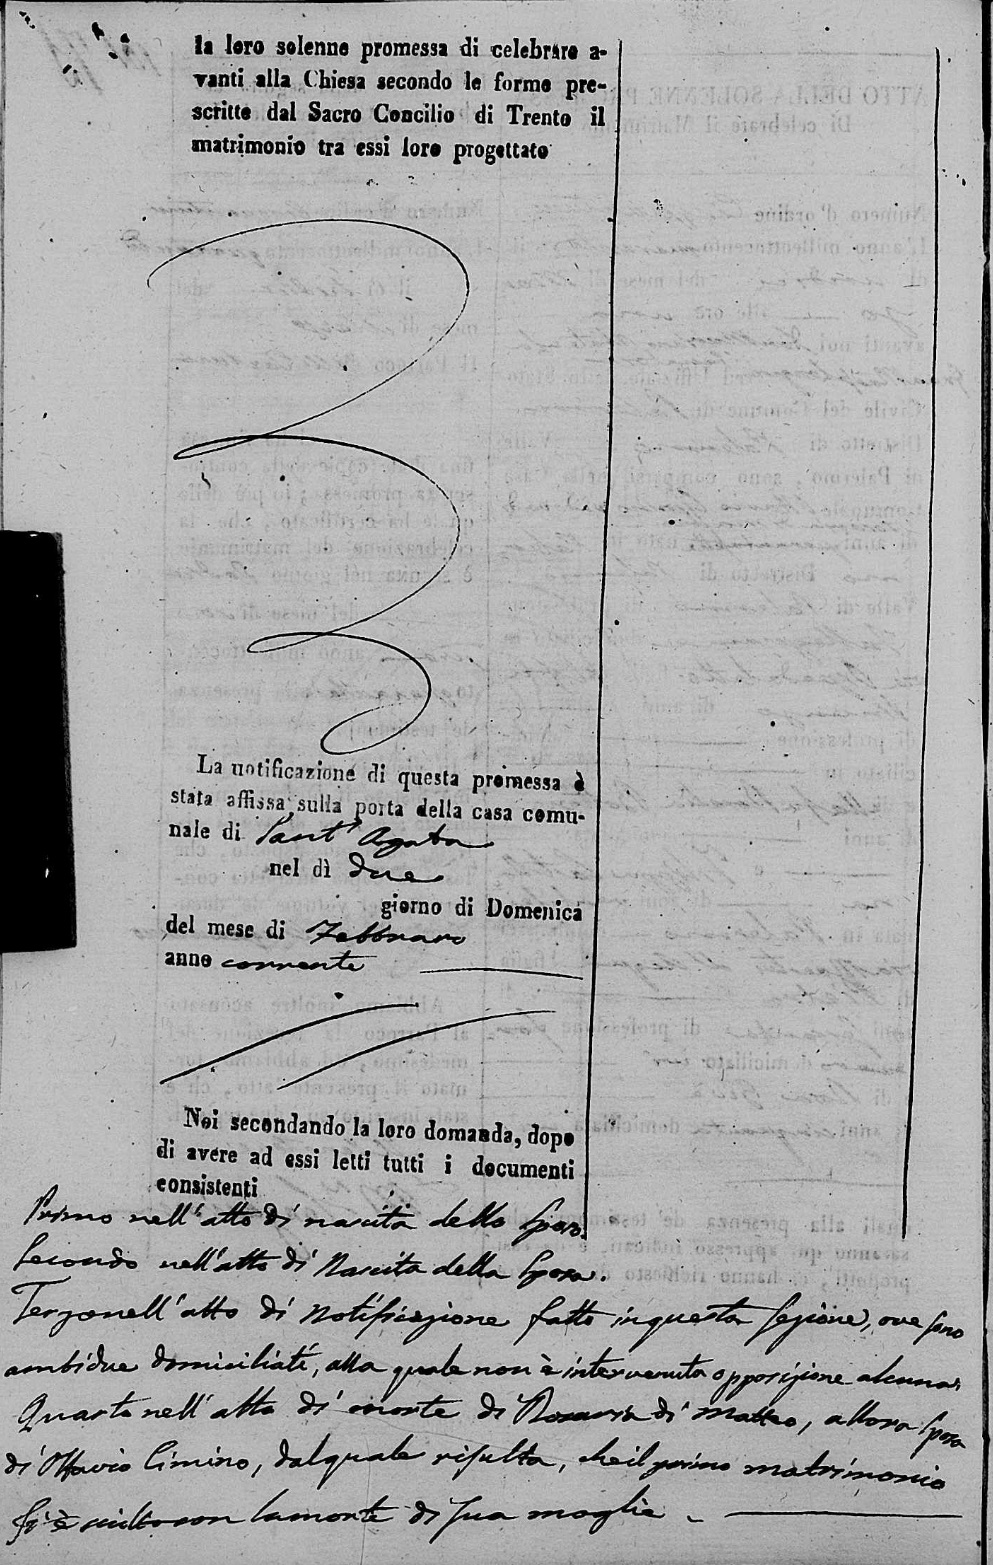 la loro solenne promessa di celebrare a-
vanti alla Chiesa secondo le forme pre-
scritte dal Sacro Concilio di Trento il
matrimonio tra essi loro progettato
La notificazione di questa promessa è
stata affissa sulla porta della casa comu-
nale di Sant' Agata
nel dì due
giorno di Domenica
del mese di Febbraro
anno corrente
Noi secondando la loro domanda, dopo
di avere ad essi letti tutti i documenti
consistenti
Primo nell' atto di nascita dello Sposo.
Secondo nell' atto di Nascita della Sposa.
Terzo nell' atto di Notificazione fatto in questa Sezione, ove sono
ambidue domiciliati, alla quale non è intervenuta opposizione alcuna.
Quarto nell' atto di morte di Rosaria di Matteo, allora Sposa
di Ottavio Cimino, dal quale risulta, che il primo matrimonio
si è sciolto con la morte di sua moglie.